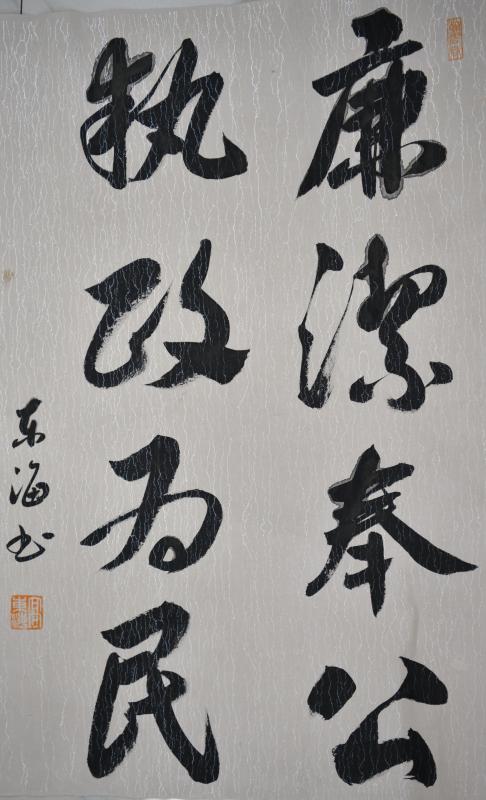 廉潔奉公
执政为民
东海书